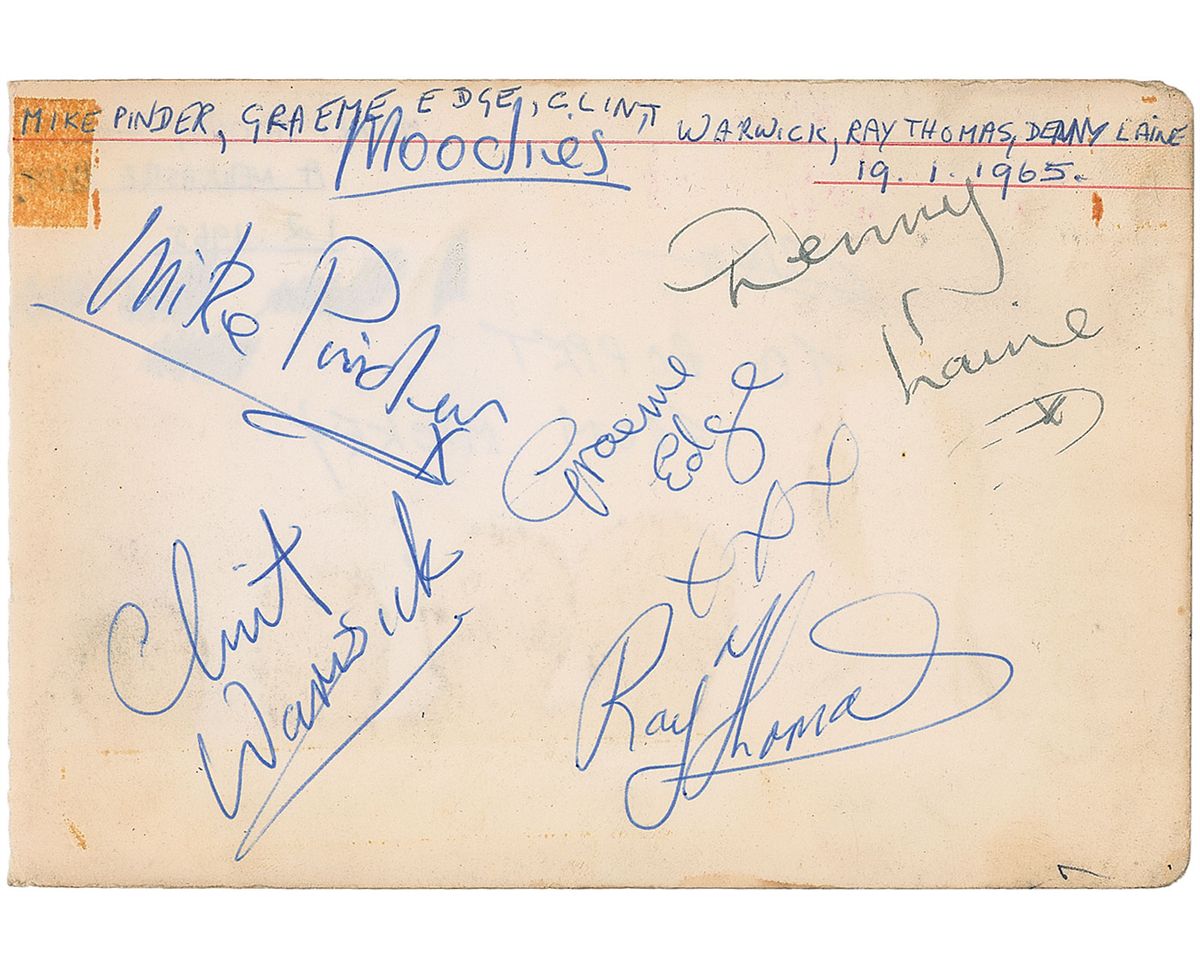 MIKE PINDER, GRAEME EDGE, CLINT WARWICK, RAY THOMAS, DENNY LAINE
Moodies
19. 1. 1965.
Denny
Laine
x
Mike Pinder
x
Graeme
Edge
xxx
Clint
Warwick
Ray Thomas